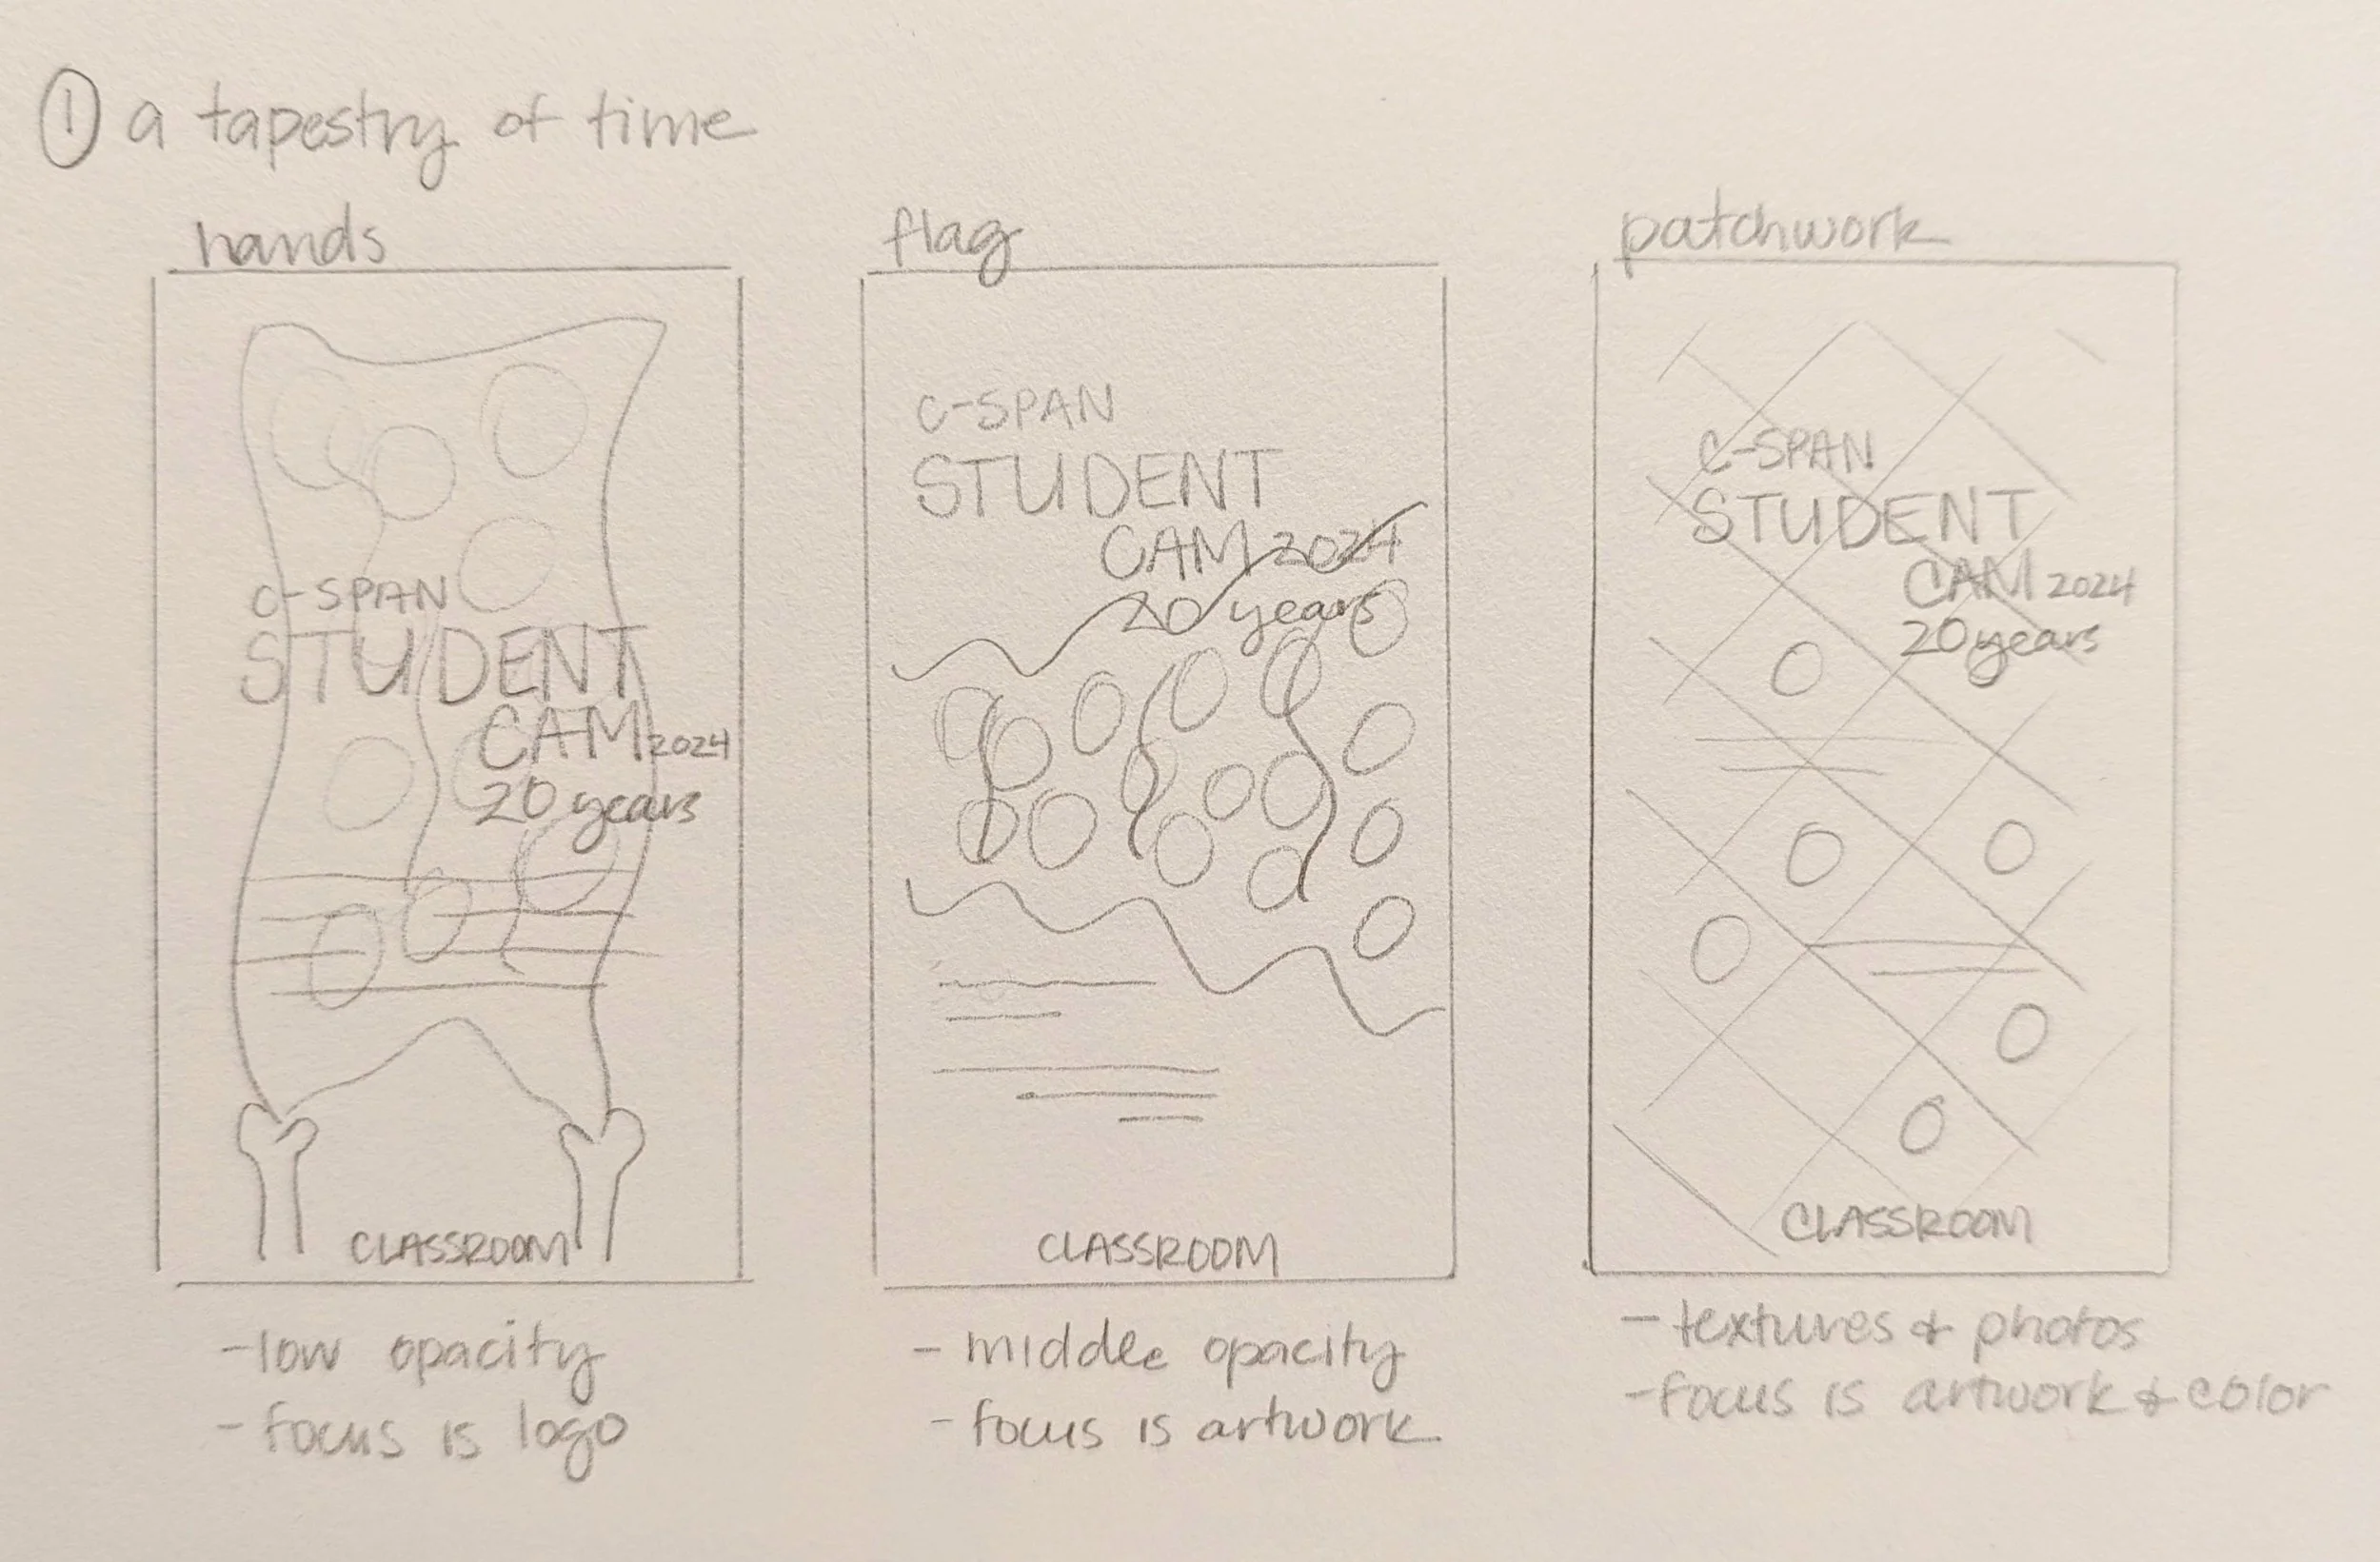 ① a tapestry of time
hands
C-SPAN
STUDENT
CAM 2024
20 years
CLASSROOM
- low opacity
- focus is logo
flag
C-SPAN
STUDENT
CAM 2024
20 years
CLASSROOM
- middle opacity
- focus is artwork
patchwork
C-SPAN
STUDENT
CAM 2024
20 years
CLASSROOM
- textures & photos
- focus is artwork & color